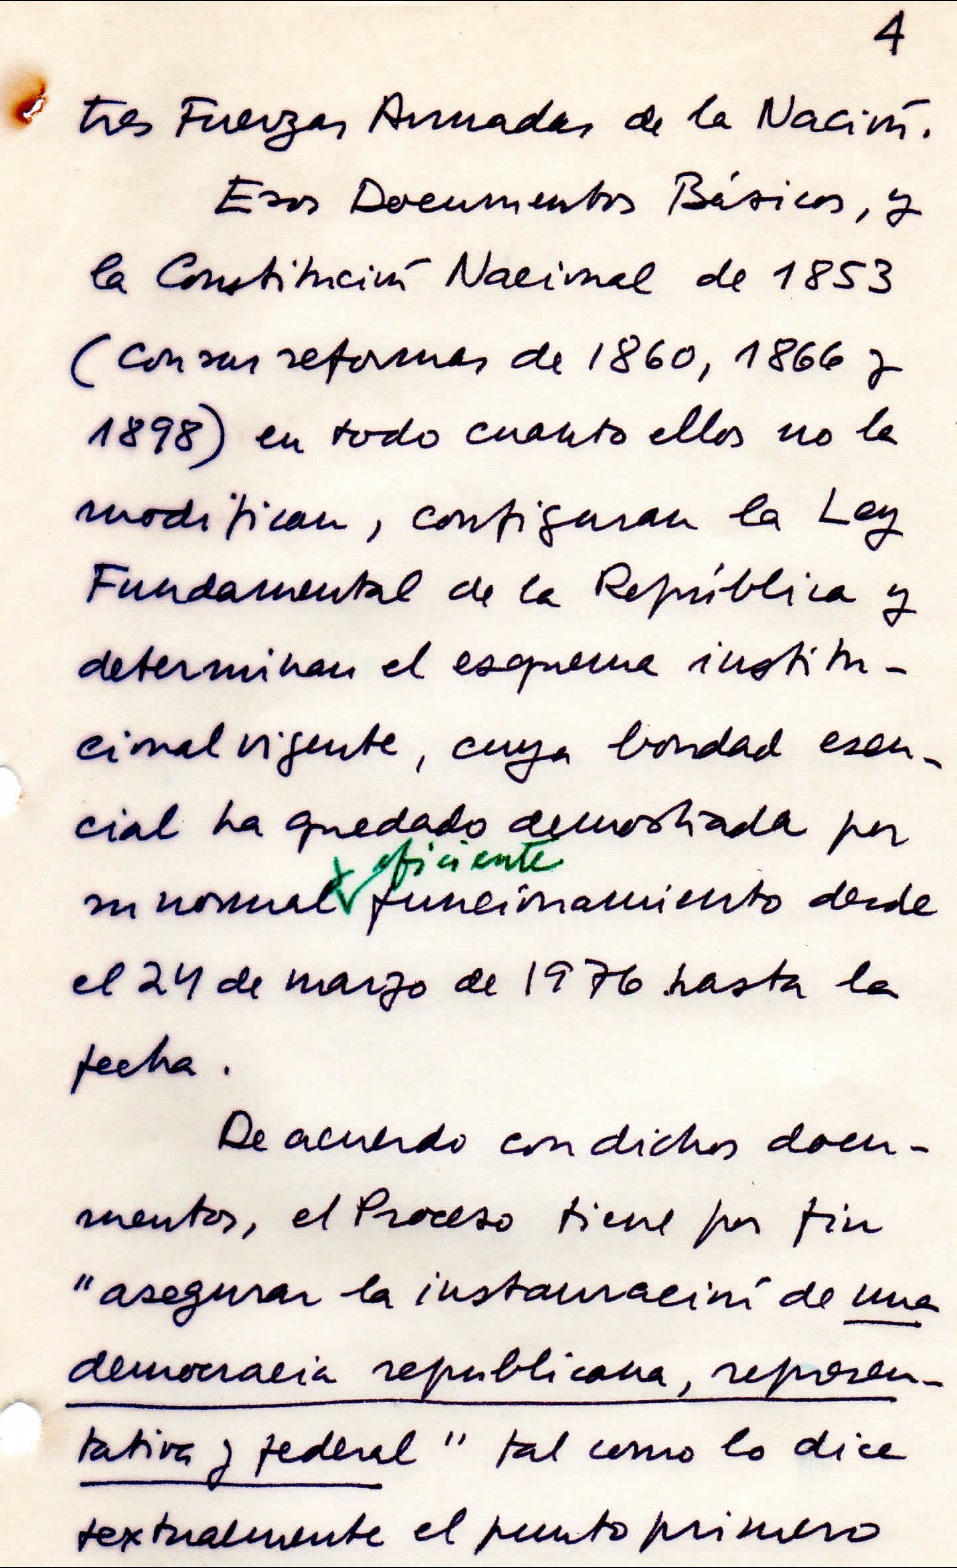 4
tres Fuerzas Armadas de la Nación.
Esos Documentos Básicos, y
la Constitución Nacional de 1853
(con sus reformas de 1860, 1866 y
1898) en todo cuanto ellos no la
modifican, configuran la Ley
Fundamental de la República y
determinan el esquema institu-
cional vigente, cuya bondad esen-
cial ha quedado demostrada por
y eficiente
su normal funcionamiento desde
el 24 de marzo de 1976 hasta la
fecha.
De acuerdo con dichos docu-
mentos, el Proceso tiene por fin
"asegurar la instauración de una
democracia republicana, represen-
tativa y federal" tal como lo dice
textualmente el punto primero